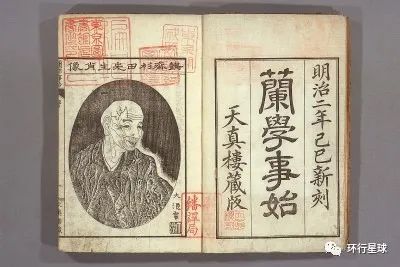 明治二年己巳新刻
蘭學事始
天真樓藏版
鷧齋杉田先生肖像
繙譯局
环行星球